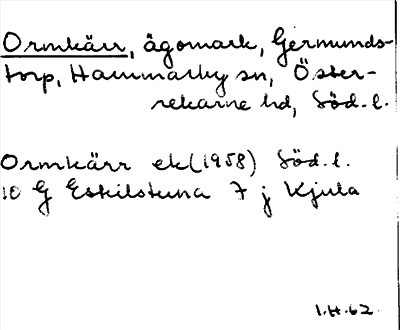 Ormkärr, ägomark, Germunds-
torp, Hammarby sn, Öster-
rekarne hd, Söd. l.
Ormkärr ek (1958) Söd. l.
10 G Eskilstuna 7 j Kjula
1.H.62.